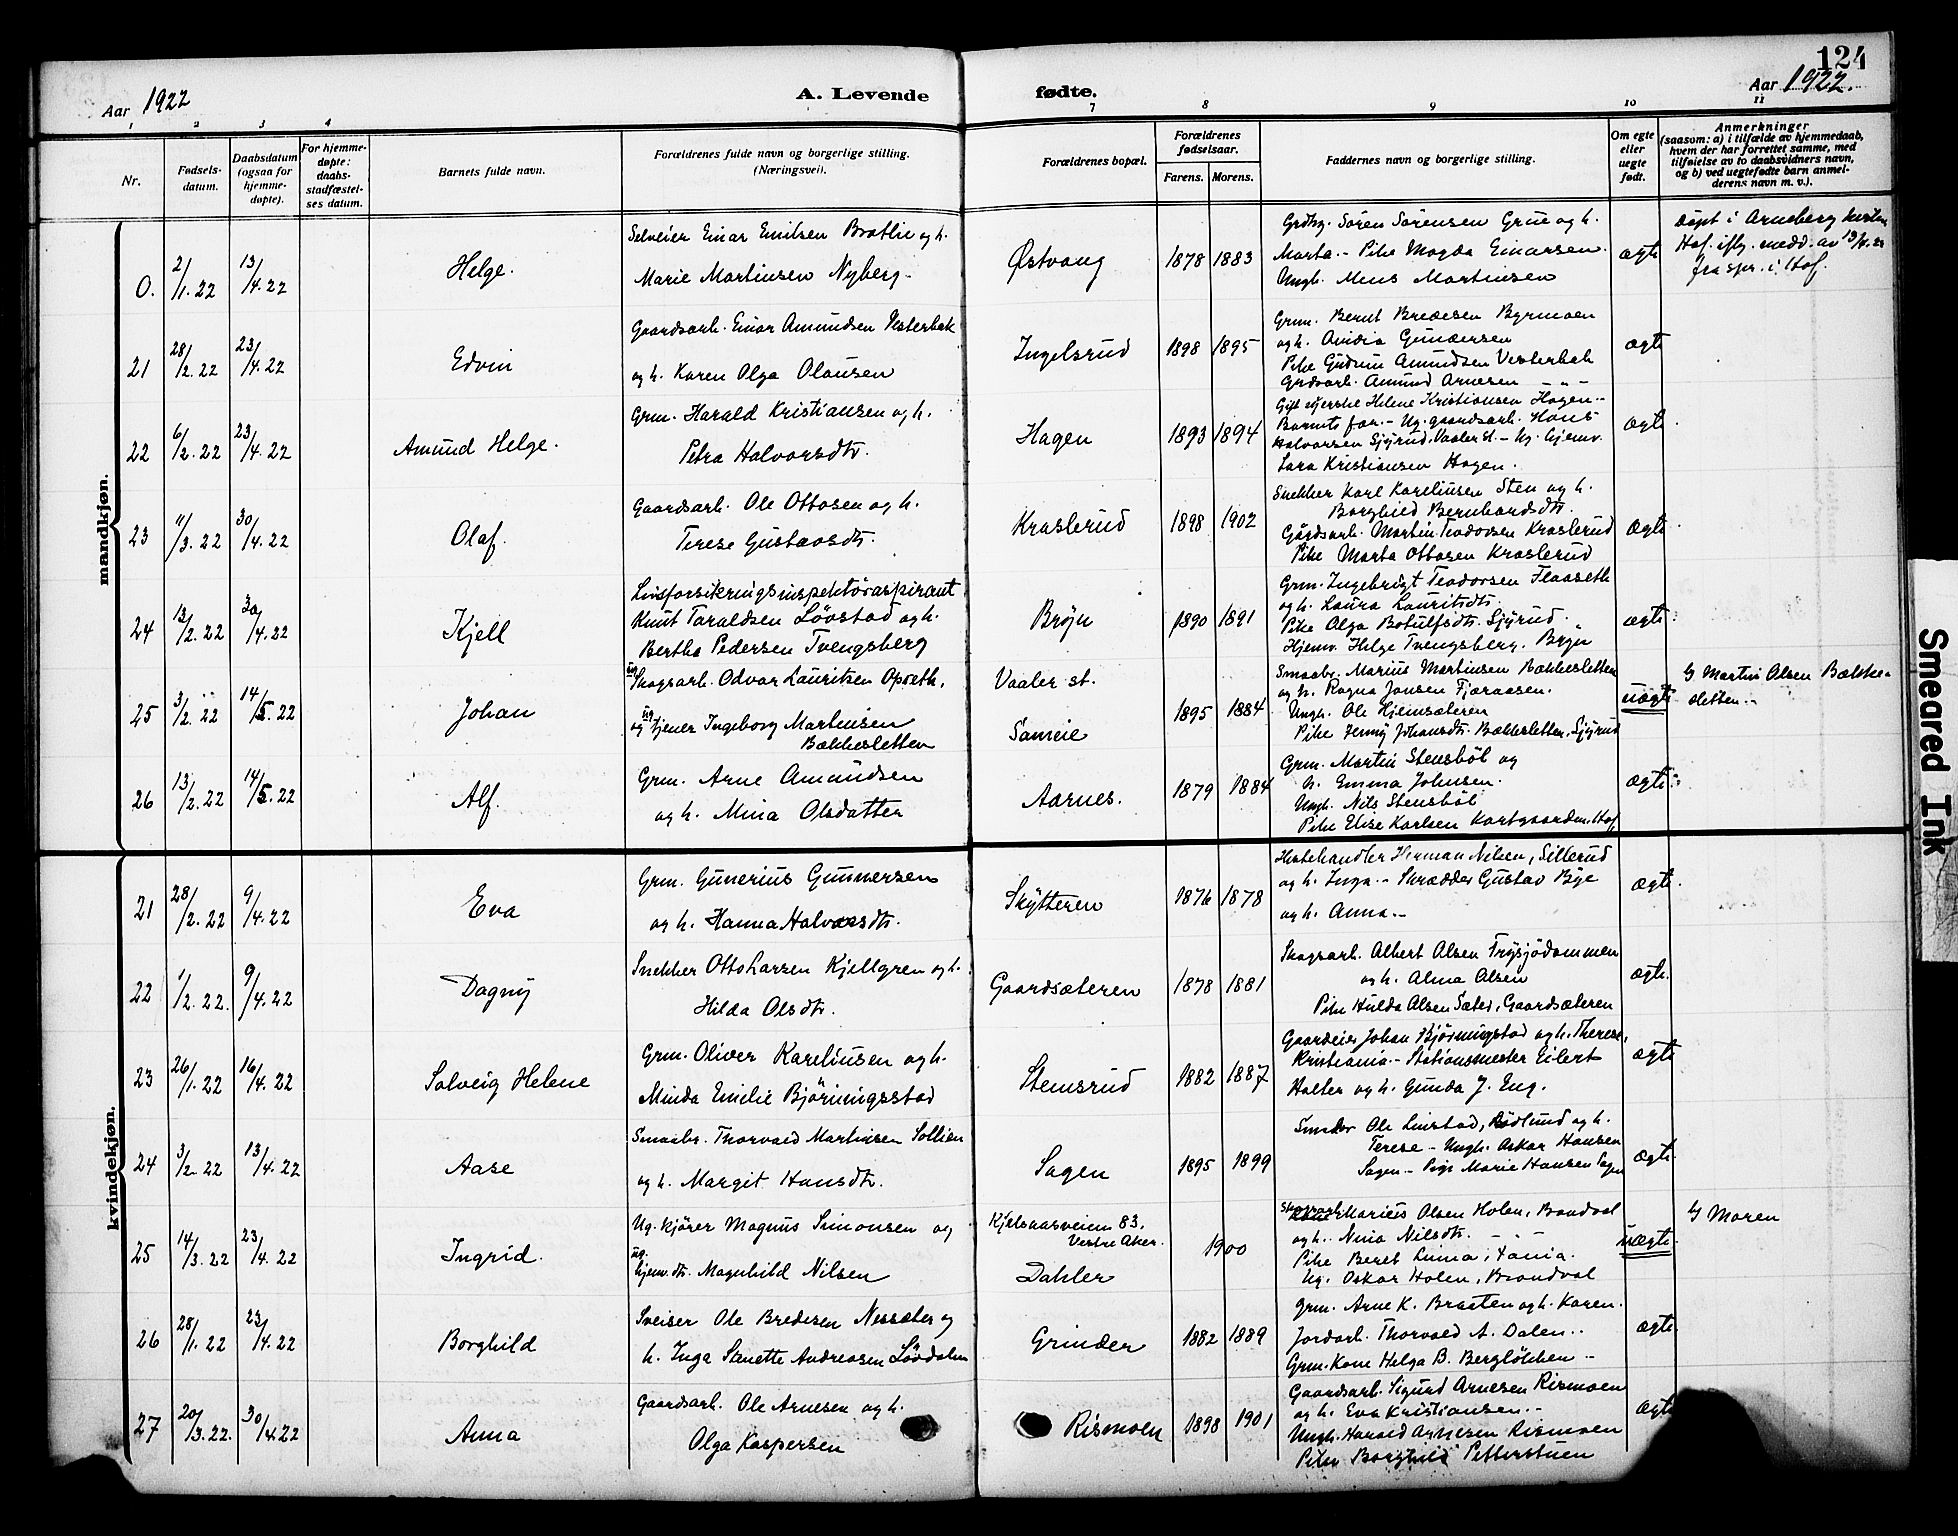 124
Aar 1922
A. Levende
fødte.
Aar 1922.
1 2 3 4 7 8 9 10 11
Nr.
Fødsels-
datum.
Daabsdatum
(ogsaa for
hjemme-
døpte).
For hjemme-
døpte:
daabs-
stadfæstel-
ses datum.
Barnets fulde navn.
Forældrenes fulde navn og borgerlige stilling.
(Næringsvei).
Forældrenes bopæl.
Forældrenes
fødselsaar.
Farens. Morens.
Faddernes navn og borgerlige stilling.
Om egte
eller
uegte
født.
Anmerkninger
(saasom: a) i tilfælde av hjemmedaab,
hvem der har forrettet samme, med
tilføielse av to daabsvidners navn,
og b) ved uegtefødte barn anmel-
derens navn m. v.).
mandkjøn.
0.
2/1.22
13/4.22
Helge.
Selveier Einar Emilsen Bratlie og h.
Marie Martinsen Nyberg -
Østvang
1878 1883
Grdbr. Søren Sørensen Grue og h.
Marta. - Pike Magda Einarsen.
Ungk. Mens Martinsen
ægte
døpt i Arneberg kirke
Hof iflg. medd. av
fra spr. i Hof.
21
28/2.22
23/4.22
Edvin
Gaardsarb. Einar Amundsen Vesterbak
og h. Karen Olga Olausen
Ingelsrud
1898 1895
Grm. Bernt Bredesen Byrmoen
og h. Gundersen
Pike Gudrun Amundsen Vesterbak
Grdsarb. Amund Arnesen - " -
ægte
22
6/2.22
23/4.22
Amund Helge.
Grm. Harald Kristiansen og h.
Petra Halvorsdtr.
Hagen
1893 1894
Gift Helene Kristiansen Hagen -
Barnets far. - Ug. gaardsarb. Hans
Halvorsen Sjyrud, Vaaler st. - Ug. hjemv.
Lara Kristiansen Hagen.
ægte
23
11/3.22
30/4.22
Olaf.
Gaardsarb. Ole Ottosen og h.
Terese Gustavsdtr.
Kraslerud
1898 1902
Snekker Karl Kareliusen Sten og h.
Borghild Bernhardsdtr.
Gårdsarb. Martin Teodorsen Kraslerud
Pike Marta Ottosen Kraslerud
ægte
24
13/2.22
30/4.22
Kjell
Livsforsikringsinspektøraspirant
Knut Taraldsen Løvstad og h.
Bertha Pedersen Tvengsberg
Brÿn
1890 1891
Grm. Ingebrigt Teodorsen Flaaseth
og h. Laura Lauritsdtr.
Pike Olga Botulfsdtr. Sjyrud.
Hjemv. Helge Tvengsberg. Bryn
ægte
25
3/2.22
14/5.22
Johan
ug Skogsarb. Odvar Lauritzen Opseth,
og ug tjener Ingeborg Martinsen
Bækkesletten
Vaaler st.
Sameie
1895 1884
Smaabr. Marius Martinsen Bækkesletten
og h. Ragna Jansen Fjæraasen.
Ungk. Ole Hjemsæteren
Pike Jenny Johansdtr. Bækkesletten, Sjyrud
uægte
G Martin Olsen Bække-
sletten. -
26
13/2.22
14/5.22
Alf.
Grm. Arne Amundsen
og h. Mina Olsdatter
Aarnes.
1879 1884
Grm. Martin Stensbøl og
h. Emma Johnsen.
Ungk. Nils Stensbøl
Pike Elise Karlsen Kortgaarden, Hof
ægte
kvindekjøn.
21
28/2.22
9/4.22
Eva
Grm. Gunerius Gunnersen
og h. Hanna Halvorsdtr.
Skytteren
1876 1878
Hestehandler Herman Nilsen, Sillerud
og h. Inga. - Skrædder Gustav Bye
og h. Anna. -
ægte
22
1/2.22.
9/4.22
Dagny
Snekker Otto Larsen Kjellgren og h.
Hilda Olsdtr.
Gaardsæteren
1878 1881
Skogsarb. Albert Olsen Frysjødammen
og h. Alma Olsen
Pike Hulda Olsen Sæter, Gaardsæteren
ægte.
23
26/1.22
16/4.22
Solveig Helene
Grm. Oliver Kareliusen og h.
Minda Emilie Bjørningsstad
Stemsrud
1882 1887
Gaardeier Johan Bjørningstad og h. Therese,
Kristiania. - Stationsmester Eilert
Halter og h. Gunda J. Eng.
ægte
24
3/2.22
13/4.22
Aase
Smaabr. Thorvald Martinsen Sollien
og h. Margit Hansdtr.
Sagen
1895 1899
Ole Linstad, og h.
Terese - Ungk. Oskar Hansen
Sagen - Pige Marie Hansen Sagen
ægte
25
14/3.22
23/4.22
Ingrid.
Ug. kjører Magnus Simonsen og
ug. hjemv. dtr. Magnhild Nilsen
Kjelsaasveien 83.
Vestre Aker.
Dahler
1900
Skogsarb. Marius Olsen Holen, Brandval
og h. Nina Nilsdtr. - " -
Pike Beret Linna,
Ug. Oskar Holen, Brandval
uægte
G Moren
26
28/1.22
23/4.22
Borghild
Sveiser Ole Bredesen Nessæter og
h. Inga Stenette Andreasen Løvdalen
Grinder
1882 1889
Grm. Arne K. Braaten og h. Karen.
Jordarb. Thorvald A. Dalen. -
Grm. Kone Helga B. Bergløkken -
ægte
27
20/3.22.
30/4.22
Anna
Gaardsarb. Ole Arnesen og h.
Olga Kaspersen
Rismoen
1898 1901
Gaardsarb. Sigurd Arnesen Rismoen
og h. Eva Kristiansen. -
Ungk. Harald Arnesen Rismoen
Pike Borghild Petterstuen
ægte
Smeared Ink